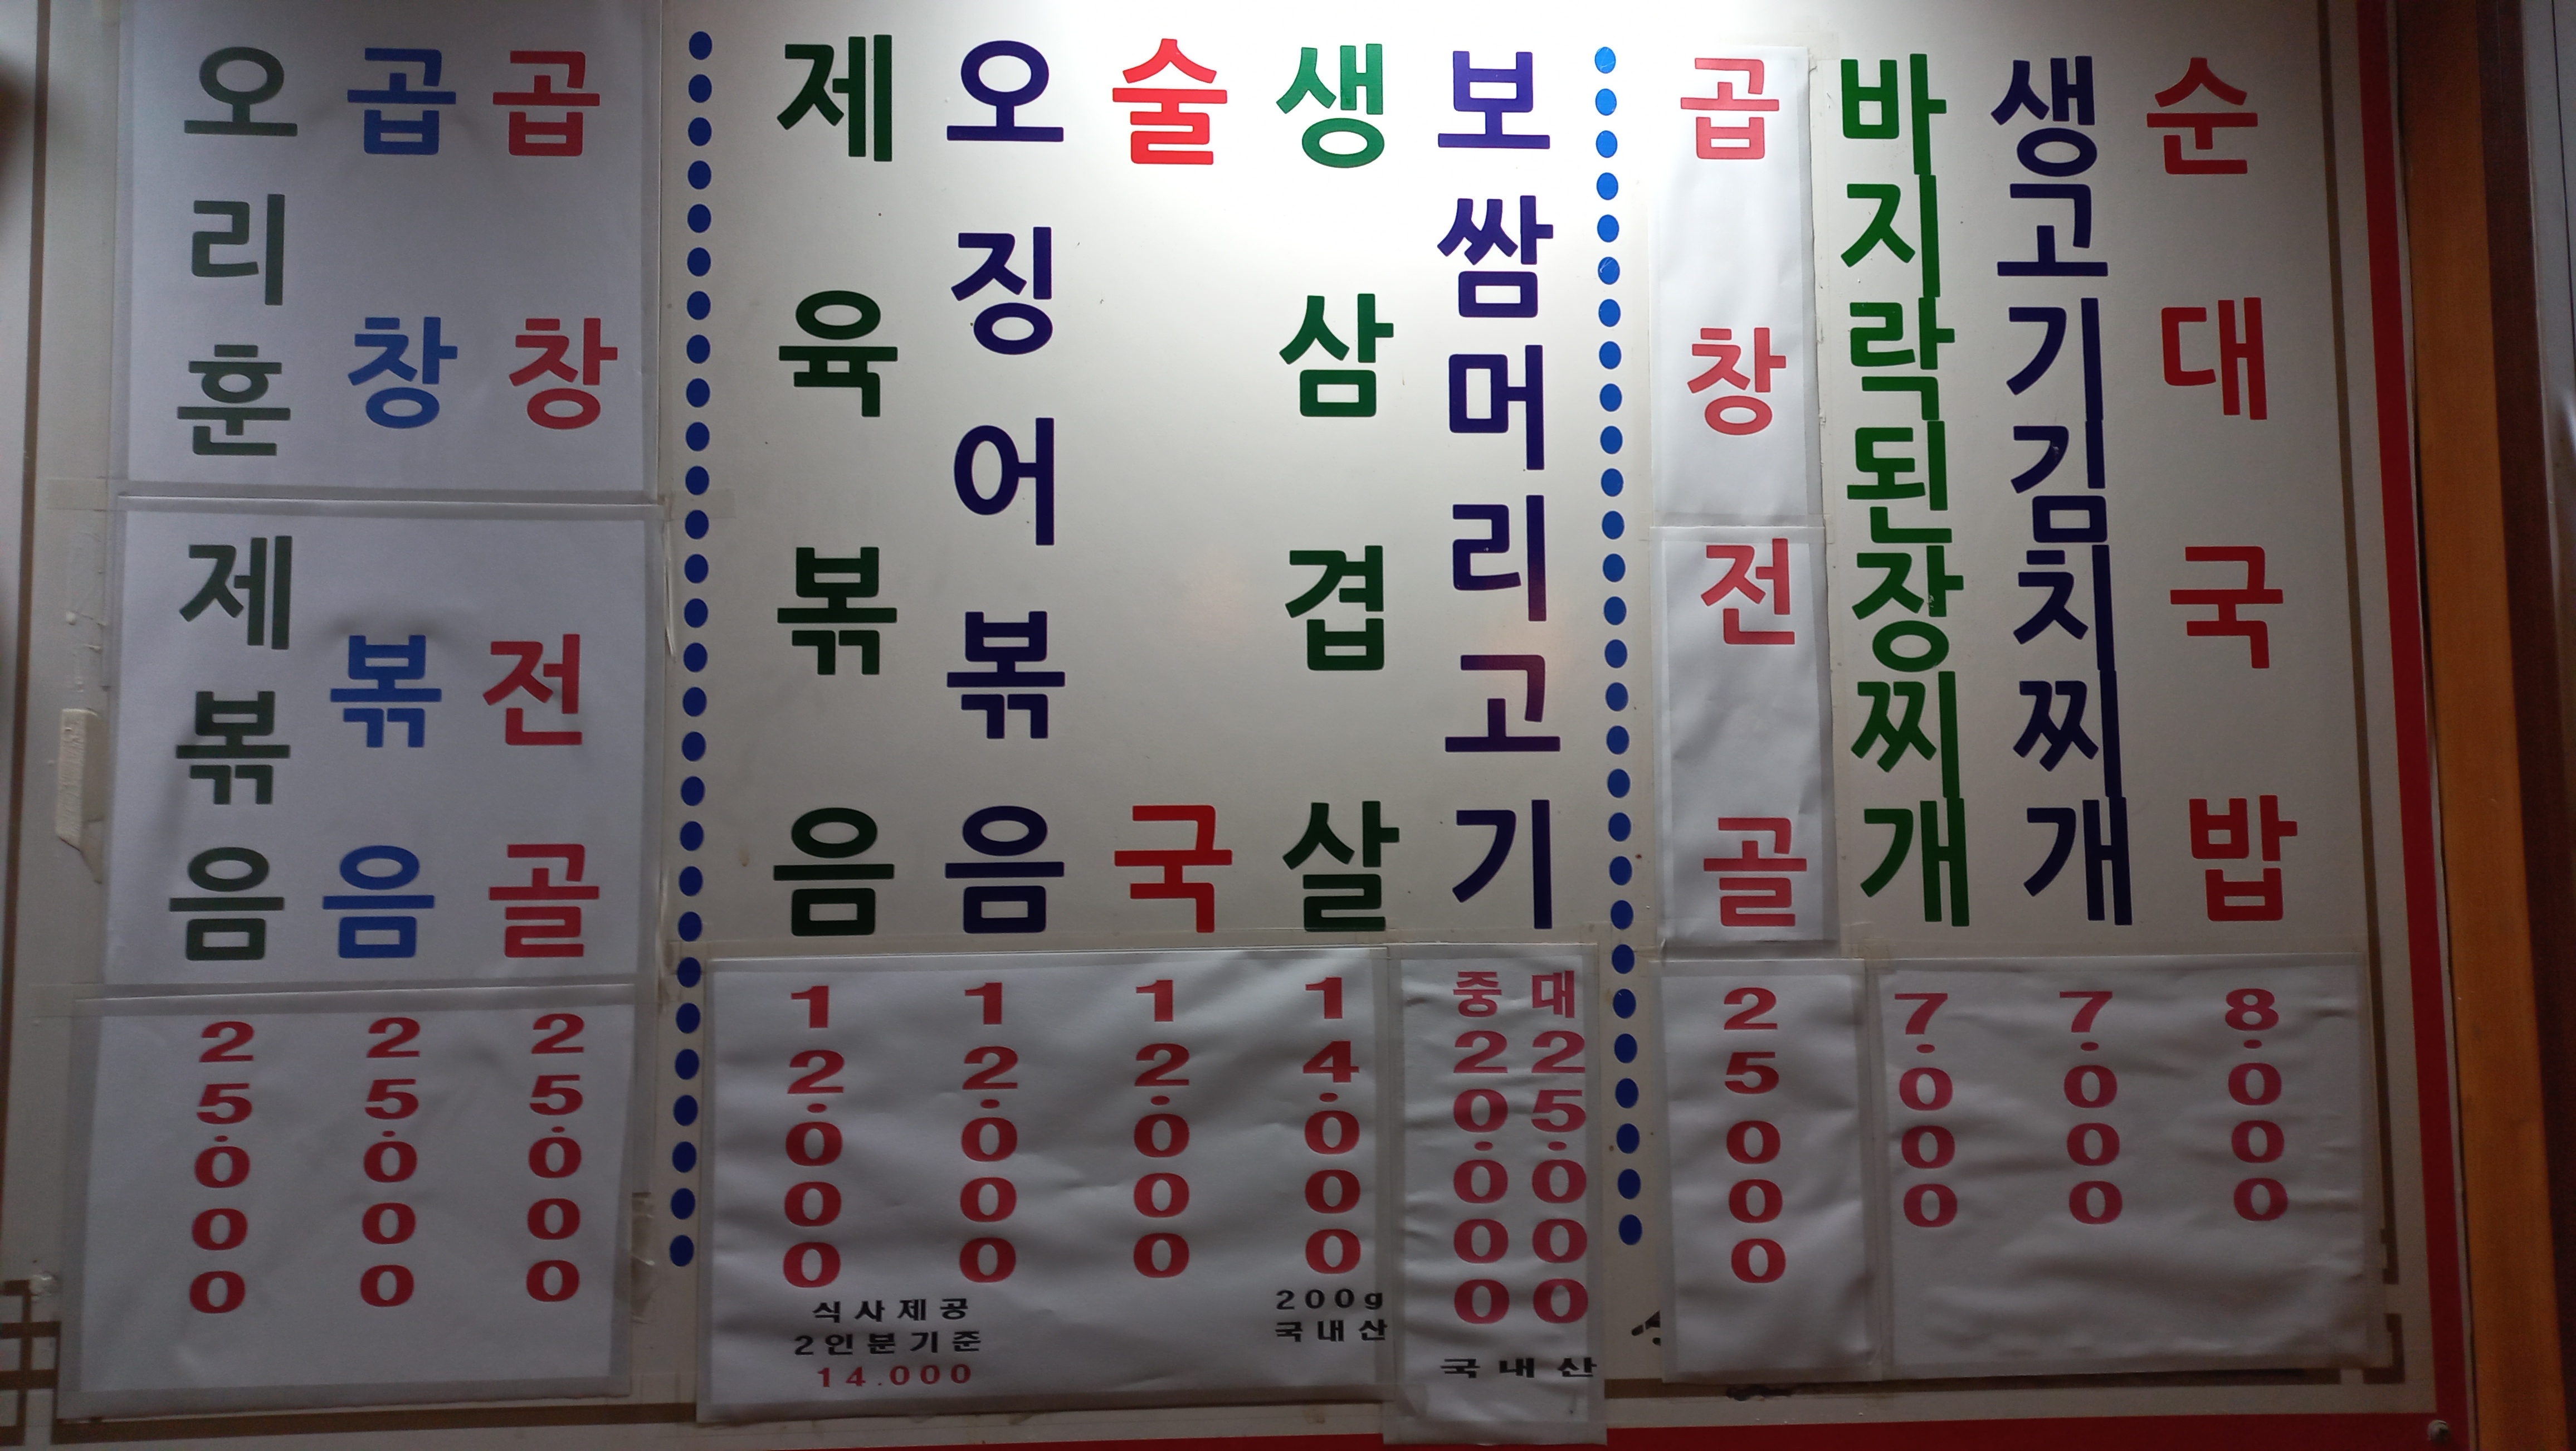 오리훈제볶음
25.000
곱창볶음
25.000
곱창전골
25.000
제육볶음
12.000
오징어볶음
12.000
식사제공
2인분기준
14.000
술국
12.000
생삼겹살
14.000
200g
국내산
보쌈머리고기
중
20.000
대
25.000
국내산
곱창전골
25000
바지락된장찌개
7.000
생고기김치찌개
7.000
순대국밥
8.000